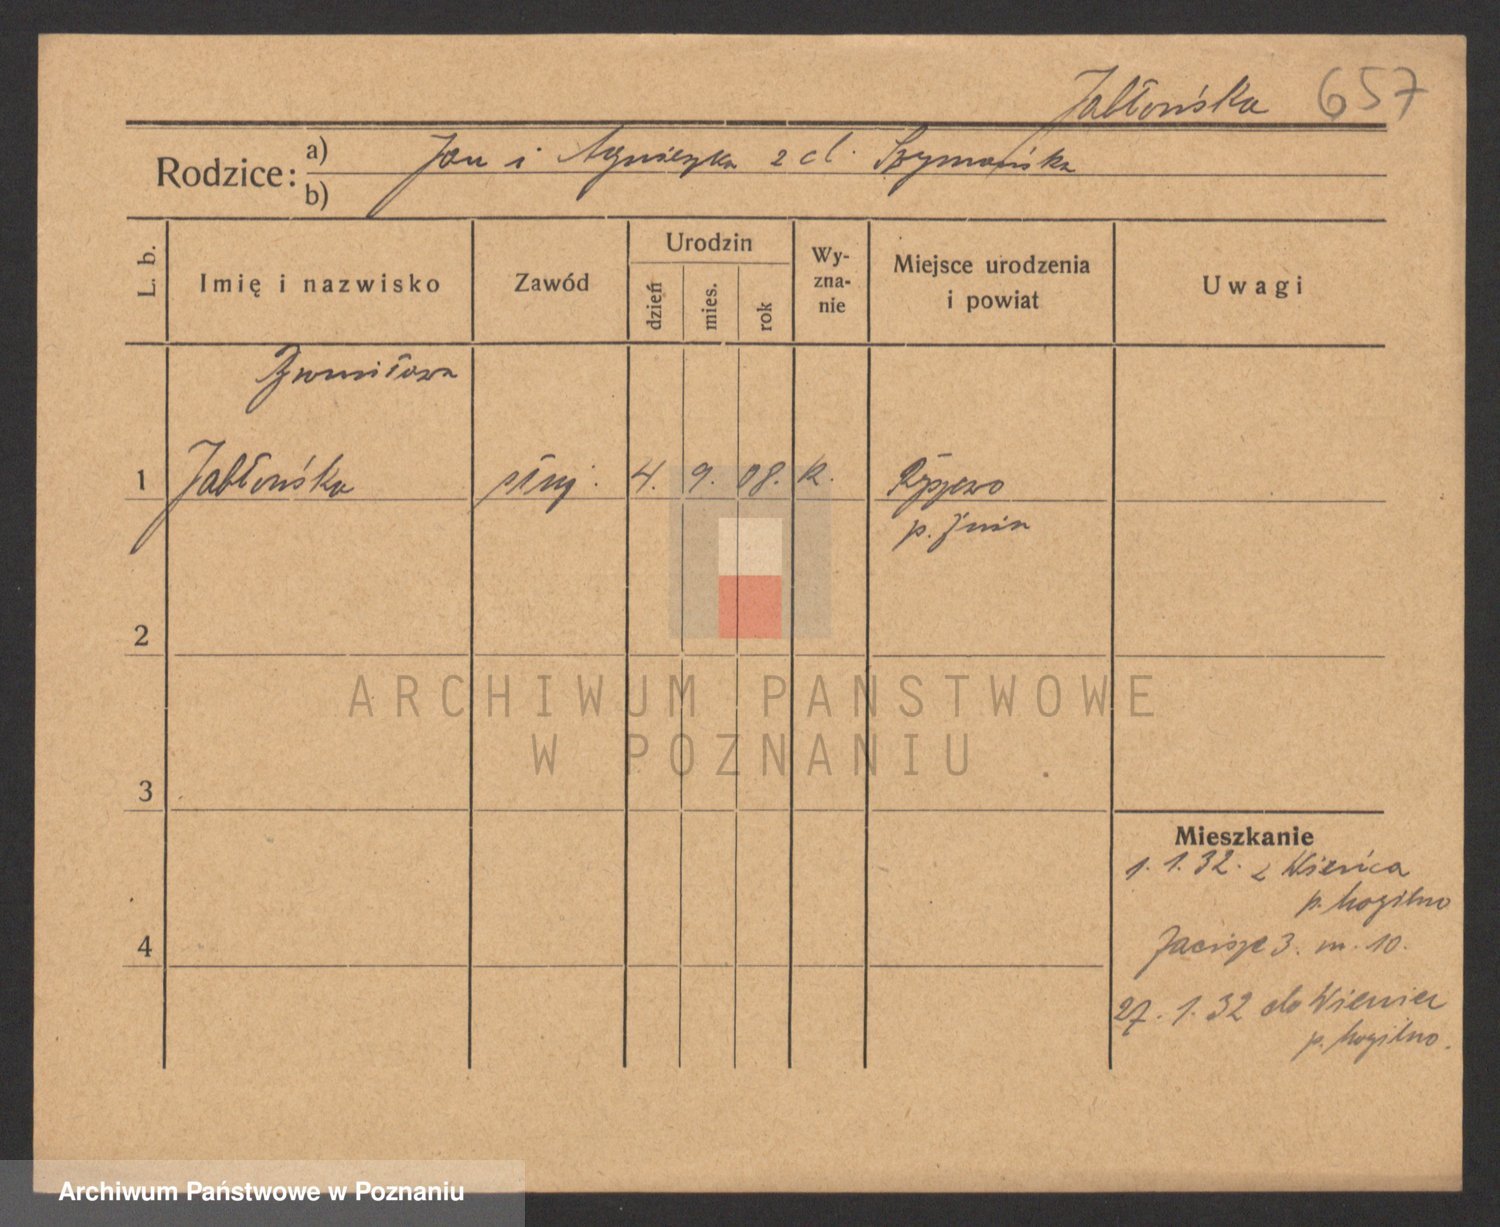 Jabłońska 657
Rodzice: a) Jan i Agnieszka z d. Szymańska
b)
L. b. Imię i nazwisko Zawód Urodzin dzień mies. rok Wy-zna-nie Miejsce urodzenia i powiat Uwagi
Bronisława
1 Jabłońska służ. 4. 9. 08. k.
p. Żnin
2
ARCHIWUM PAŃSTWOWE
W POZNANIU
3
Mieszkanie
1. 1. 32. z Wieńca
p. Mogilno
3. m. 10.
4
27. 1. 32 do Wieniec
p. Mogilno.
Archiwum Państwowe w Poznaniu